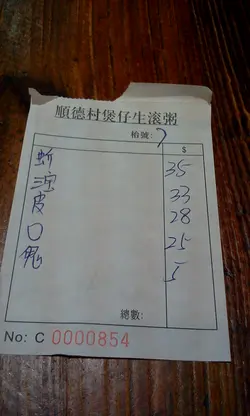 順德村煲仔生滚粥
枱號: 7
$
35
33
皮 28
25
5
總數:
No: C 0000854